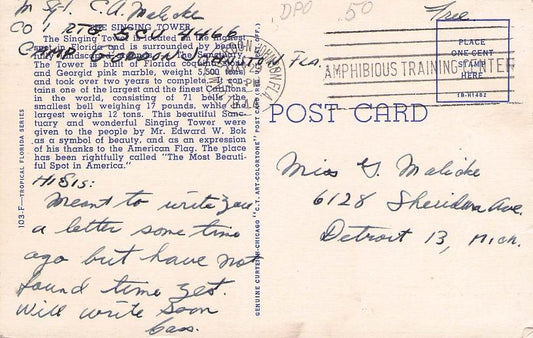 M Sgt. C.A. Malicke
DPO .50
Free
Co 1, RTG SCU 4466
CAMP GORDON JOHNSTON, FLA.
THE SINGING TOWER
The Singing Tower is located on the highest
spot in Florida and is surrounded by beauti-
fully landscaped
The Tower is built of Florida coquina
and Georgia pink marble, weight 5,500 tons
and took over two years to complete. It con-
tains one of the largest and the finest Carillons
in the world, consisting of 71 bells the
smallest bell weighing 17 pounds, while the
largest weighs 12 tons. This beautiful Sanc-
tuary and wonderful Singing Tower were
given to the people by Mr. Edward W. Bok
as a symbol of beauty, and as an expression
of his thanks to the American Flag. The place
has been rightfully called "The Most Beauti-
ful Spot in America."
Hi Sis:
Meant to write you
a letter some time
ago but have not
found time yet.
Will write soon
Cass.
103-F—TROPICAL FLORIDA SERIES
GENUINE CURTEICH-CHICAGO "C.T. ART-COLORTONE" POST CARD
GORDON JOHNSTON, FLA.
AMPHIBIOUS TRAINING CENTER
PLACE
ONE CENT
STAMP
HERE
1B-H1482
POST CARD
Miss G. Malicke
6128 Sheridan Ave.
Detroit 13, Mich.